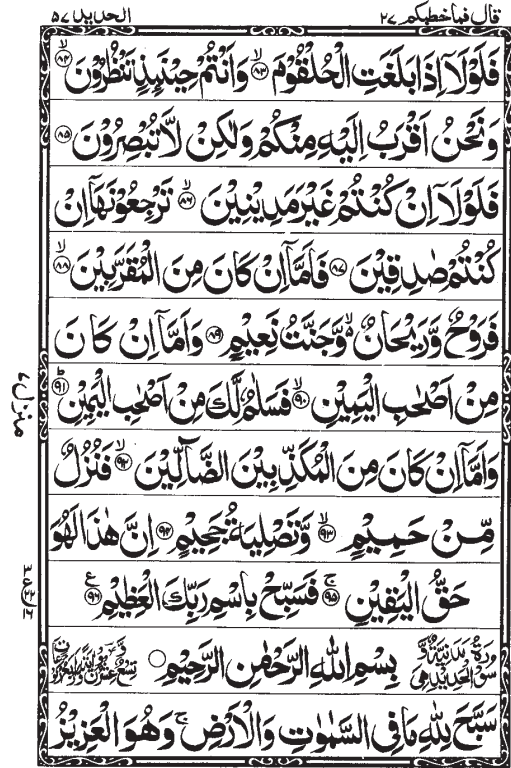 قال فما خطبكم ٢٧
الحديد ٥٧
فَلَوْلَاۤ اِذَا بَلَغَتِ الْحُلْقُوْمَ ﴿۸۳﴾ وَاَنْتُمْ حِيْنَئِذٍ تَنْظُرُوْنَ ﴿۸۴﴾
وَنَحْنُ اَقْرَبُ اِلَيْهِ مِنْكُمْ وَلٰكِنْ لَّا تُبْصِرُوْنَ ﴿۸۵﴾
فَلَوْلَاۤ اِنْ كُنْتُمْ غَيْرَ مَدِيْنِيْنَ ﴿۸۶﴾ تَرْجِعُوْنَهَاۤ اِنْ
كُنْتُمْ صٰدِقِيْنَ ﴿۸۷﴾ فَاَمَّاۤ اِنْ كَانَ مِنَ الْمُقَرَّبِيْنَ ﴿۸۸﴾
فَرَوْحٌ وَّرَيْحَانٌ ۙ وَّجَنَّتُ نَعِيْمٍ ﴿۸۹﴾ وَاَمَّاۤ اِنْ كَانَ
مِنْ اَصْحٰبِ الْيَمِيْنِ ﴿۹۰﴾ فَسَلٰمٌ لَّكَ مِنْ اَصْحٰبِ الْيَمِيْنِ ﴿۹۱﴾
وَاَمَّاۤ اِنْ كَانَ مِنَ الْمُكَذِّبِيْنَ الضَّآلِّيْنَ ﴿۹۲﴾ فَنُزُلٌ
مِّنْ حَمِيْمٍ ﴿۹۳﴾ وَّتَصْلِيَةُ جَحِيْمٍ ﴿۹۴﴾ اِنَّ هٰذَا لَهُوَ
حَقُّ الْيَقِيْنِ ﴿۹۵﴾ فَسَبِّحْ بِاسْمِ رَبِّكَ الْعَظِيْمِ ﴿۹۶﴾
بِسْمِ اللّٰهِ الرَّحْمٰنِ الرَّحِيْمِ
سَبَّحَ لِلّٰهِ مَا فِى السَّمٰوٰتِ وَالْاَرْضِ ۚ وَهُوَ الْعَزِيْزُ
منزل ٧